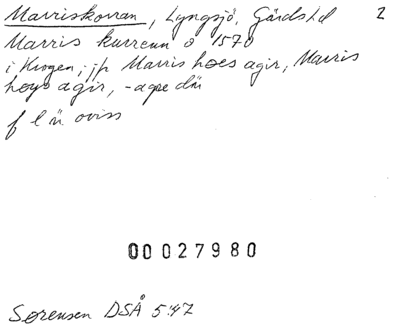 Marriskorran, Lyngsjö, Gärds hd 2
Marris kurrenn o 1570
i Krogen; jfr Marris hoes agir, Marris
hoys agir, -agre dn
f l ä. oviss
00027980
Sørensen DSÅ 5:47